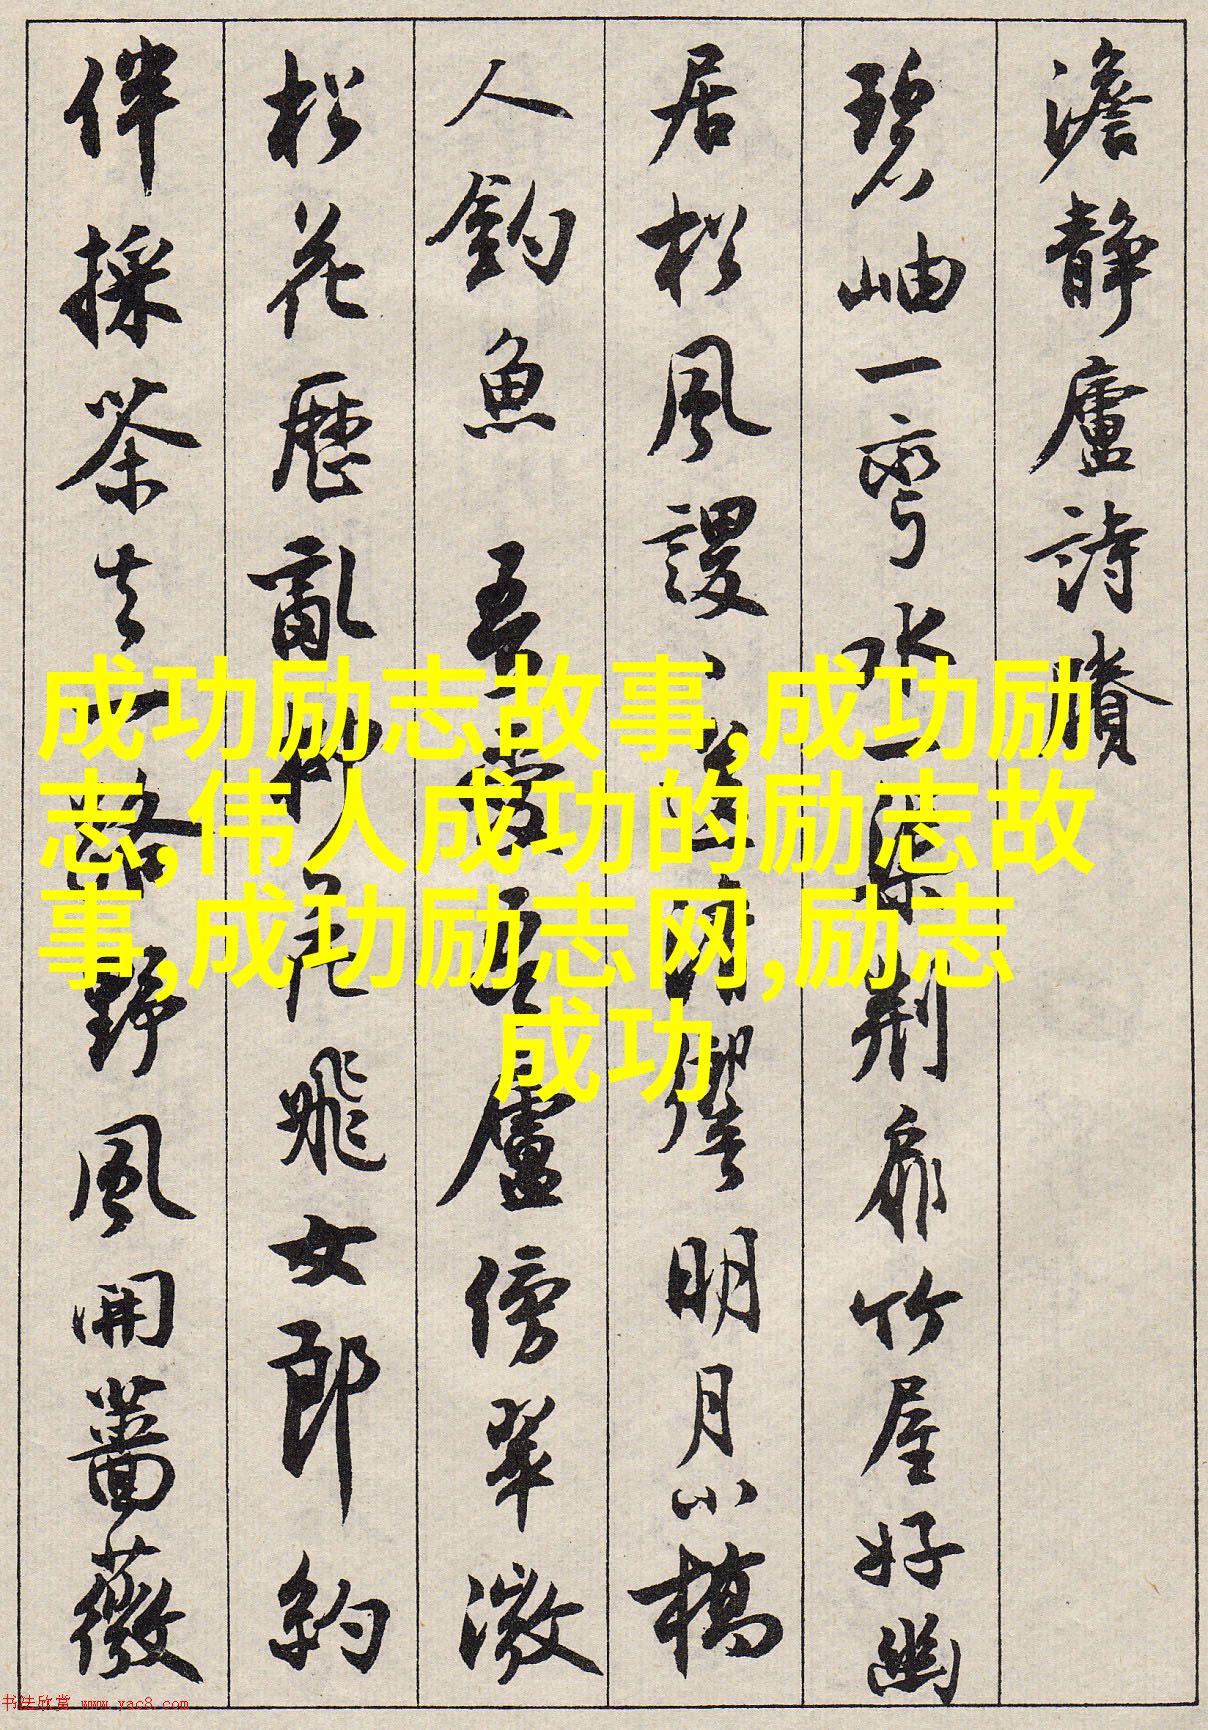 澹静廬詩賸
碧岫一彎水一渠荆扉竹屋好幽
居松風謖、
明月小橋
人釣魚 吾愛吾廬傍翠微
松花歷亂
飛女郎約
伴採茶去一路野風開薔薇
成功励志故事,成功励
志,伟人成功的励志故
事,成功励志网,励志
成功
书法欣赏 www.yac8.com